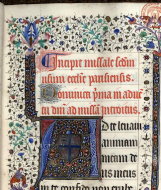 Incipit missale secdm
usum eccie parisiensis.
Dominica prima in aduen
tu dni ad missam introitus.
Ad te leuaui
animam
meam de
us meus
in te confido non erube